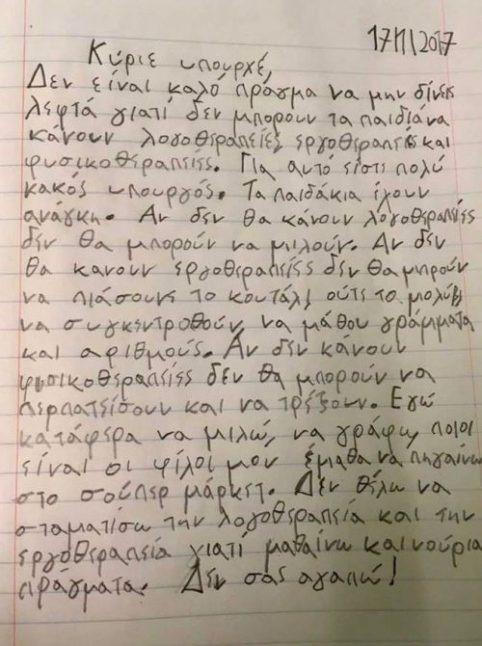 17/1/2017
Κύριε υπουρχέ,
Δεν είναι καλό πράγμα να μην δίνεις
λεφτά γιατί δεν μπορουν τα παιδιά να
κάνουν λογοθεραπείες εργοθεραπείς και
φυσικοθεραπείες. Για αυτό είστι πολύ
κακός υπουργός. Τα παιδάκια έχουν
ανάγκη. Αν δεν θα κάνουν λόγοθεραπείες
δεν θα μπορούν να μιλούν. Αν δεν
θα κανουν εργοθεραπείες δεν θα μπρούν
να πιάσουνε το κουτάλι ούτε το μολύβι
να συγκεντροθούν να μάθου γράμματα
και αριθμούς. Αν δεν κάνουν
φυσικοθεραπείες δεν θα μπορούν να
περπατείσουν και να τρέξουν. Εγώ
κατάφερα να μιλώ, να γράφω, ποιοι
είναι οι φίλοι μου έμαθα να πηγαίνω
στο σούπερ μάρκετ. Δεν θέλω να
σταματίσω την λογοθεραπεία και την
εργοθεραπεία γιατί μαθαίνω καινούρια
πράγματα. Δεν σας αγαπώ!